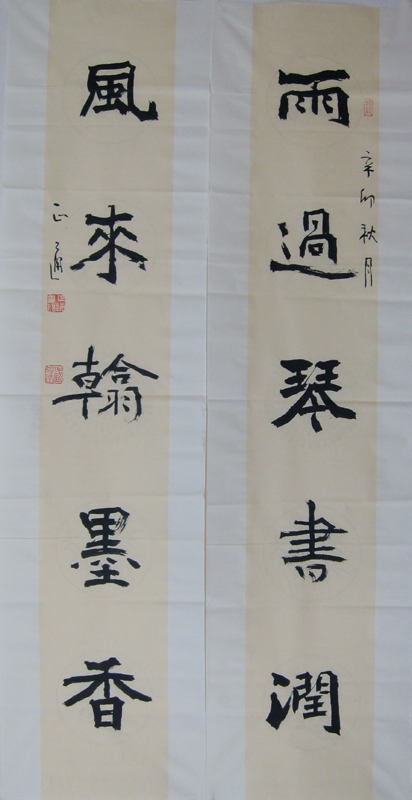 雨過琴書潤
辛卯秋月
風來翰墨香
正通